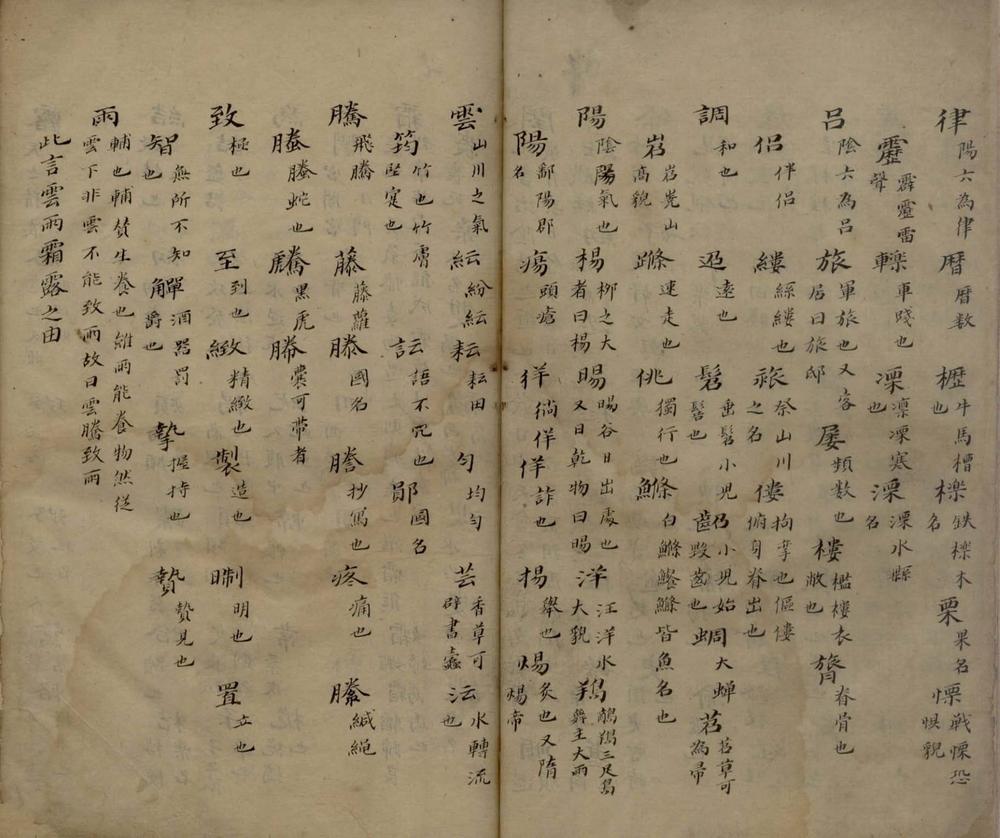 律 陽六為律 曆 曆数 櫪 牛馬槽也 櫟 鉄櫟木名 栗 果名 慄 戰慄恐惧貌
靂 霹靂雷聲 轢 車踐也 凓 凛凓寒也 溧 溧水縣名
吕 陰六為吕 旅 軍旅也又客居曰旅邸 屢 頻数也 樓 檻樓衣敝也 膂 脊骨也
侣 伴侣 縷 絲縷也 祣 祭山川之名 僂 拘挛也傴僂俯身脊出也
調 和也 迢 遠也 髫 垂髫小兒髻也 齠 乃小兒始毀齒也 蜩 大蟬 苕 苕草可為帚
岧 岧嶤山高貌 速走也 佻 獨行也 鰷 白鰷 鰷皆魚名也
陽 陰陽氣也 楊 柳之大者曰楊 暘 暘谷日出處也又日乾物曰暘 洋 汪洋水大貌 鴹 鴹三足鳥舞主大雨
陽 鄱陽郡名 瘍 頭瘡 徉 徜徉 佯 詐也 揚 舉也 煬 炙也又隋煬帝
雲 山川之氣 紜 紛紜 耘 耘田 匀 均匀 芸 香草可辟書蠹 沄 水轉流也
筠 竹也竹膚堅定也 䛘 語不定也 鄖 國名
騰 飛騰 藤 藤蘿 滕 國名 謄 抄寫也 疼 痛也 縢 緘繩
螣 螣蛇也 黑虎 幐 囊可帶者
致 極也 至 到也 緻 精緻也 製 造也 制 明也 置 立也
智 無所不知智也 觶 酒器罰觶爵也 摯 握持也 贄 贄見也
雨 輔也輔賛生养也維雨能养物然從雲下非雲不能致雨故曰雲騰致雨
此言雲雨霜露之由